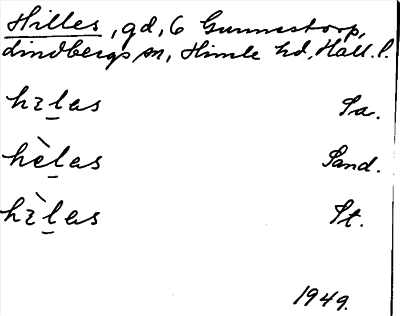 Hilles, gd, 6 Gunnestorp,
Lindbergs sn, Himle hd, Hall. l.
hɪl̲as Sa.
hèl̲as Sand.
hɪ̀l̲as St.
1949.